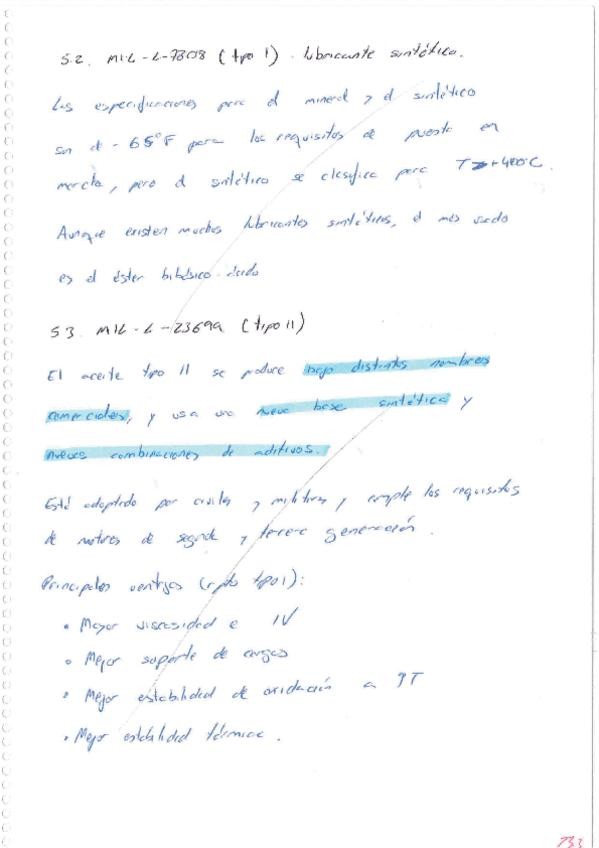 5.2. MIL-L-7808 (tipo I). lubricante sintético.
Las especificaciones para el mineral y el sintético
son de -65°F para los requisitos de puesta en
marcha, pero el sintético se clasifica para T > +400°C.
Aunque existen muchos lubricantes sintéticos, el más usado
es el éster bibásico ácido
5.3. MIL-L-23699 (tipo II)
El aceite tipo II se produce bajo distintos nombres
comerciales, y usa una nueva base sintética y
nuevas combinaciones de aditivos.
Está adoptado por civiles y militares y cumple los requisitos
de motores de segunda y tercera generación.
Principales ventajas (rpto tipo I):
• Mayor viscosidad e IV
• Mejor soporte de cargas
• Mejor estabilidad de oxidación a ↑T
• Mejor estabilidad térmica.